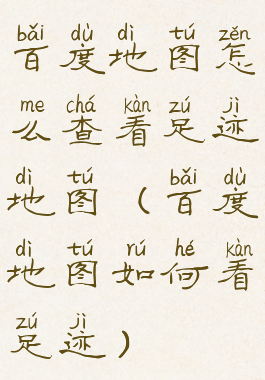 bǎi dù dì tú zěn
百度地图怎
me chá kàn zú jì
么查看足迹
dì tú bǎi dù
地图（百度
dì tú rú hé kàn
地图如何看
zú jì
足迹）